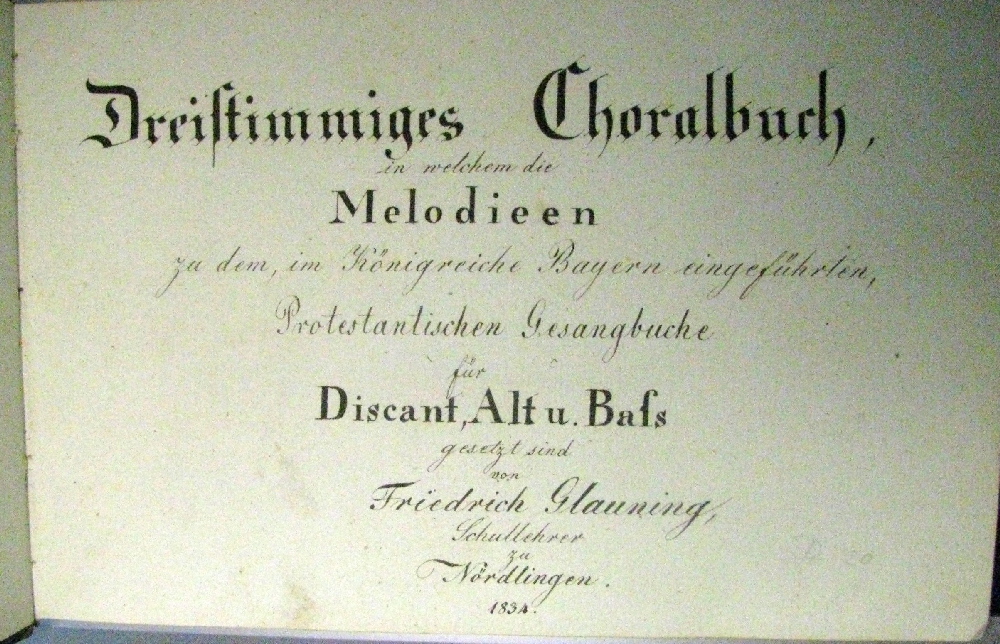 Dreiſtimmiges Choralbuch,
in welchem die
Melodieen
zu dem, im Königreiche Bayern eingeführten,
Protestantischen Gesangbuche
für
Discant, Alt u. Baſs
gesetzt sind
von
Friedrich Glauning,
Schullehrer
zu
Nördlingen.
1834.